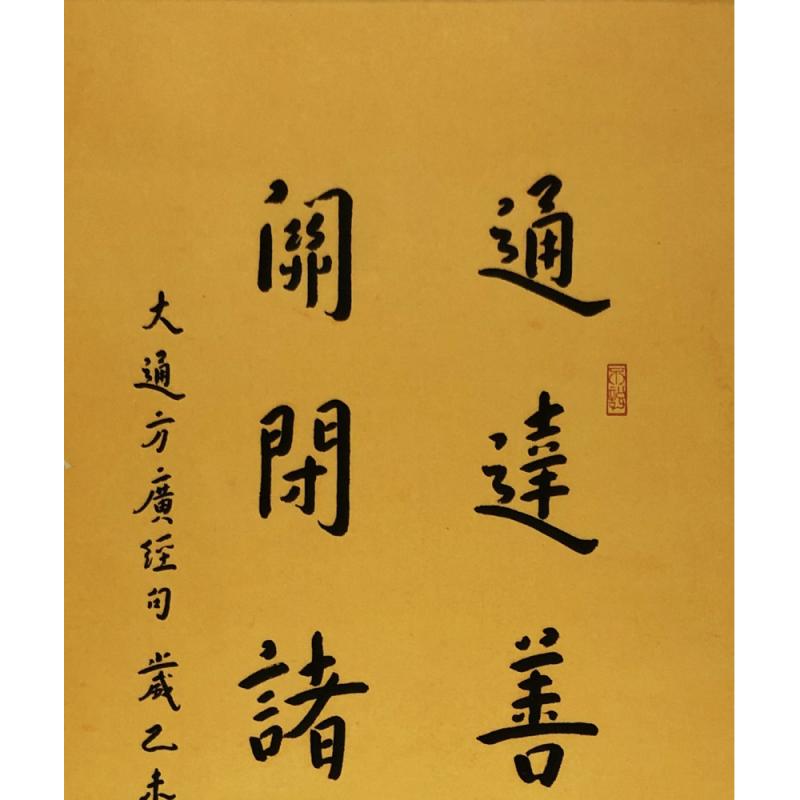 通達善
關閉諸
大通方廣經句歲乙未